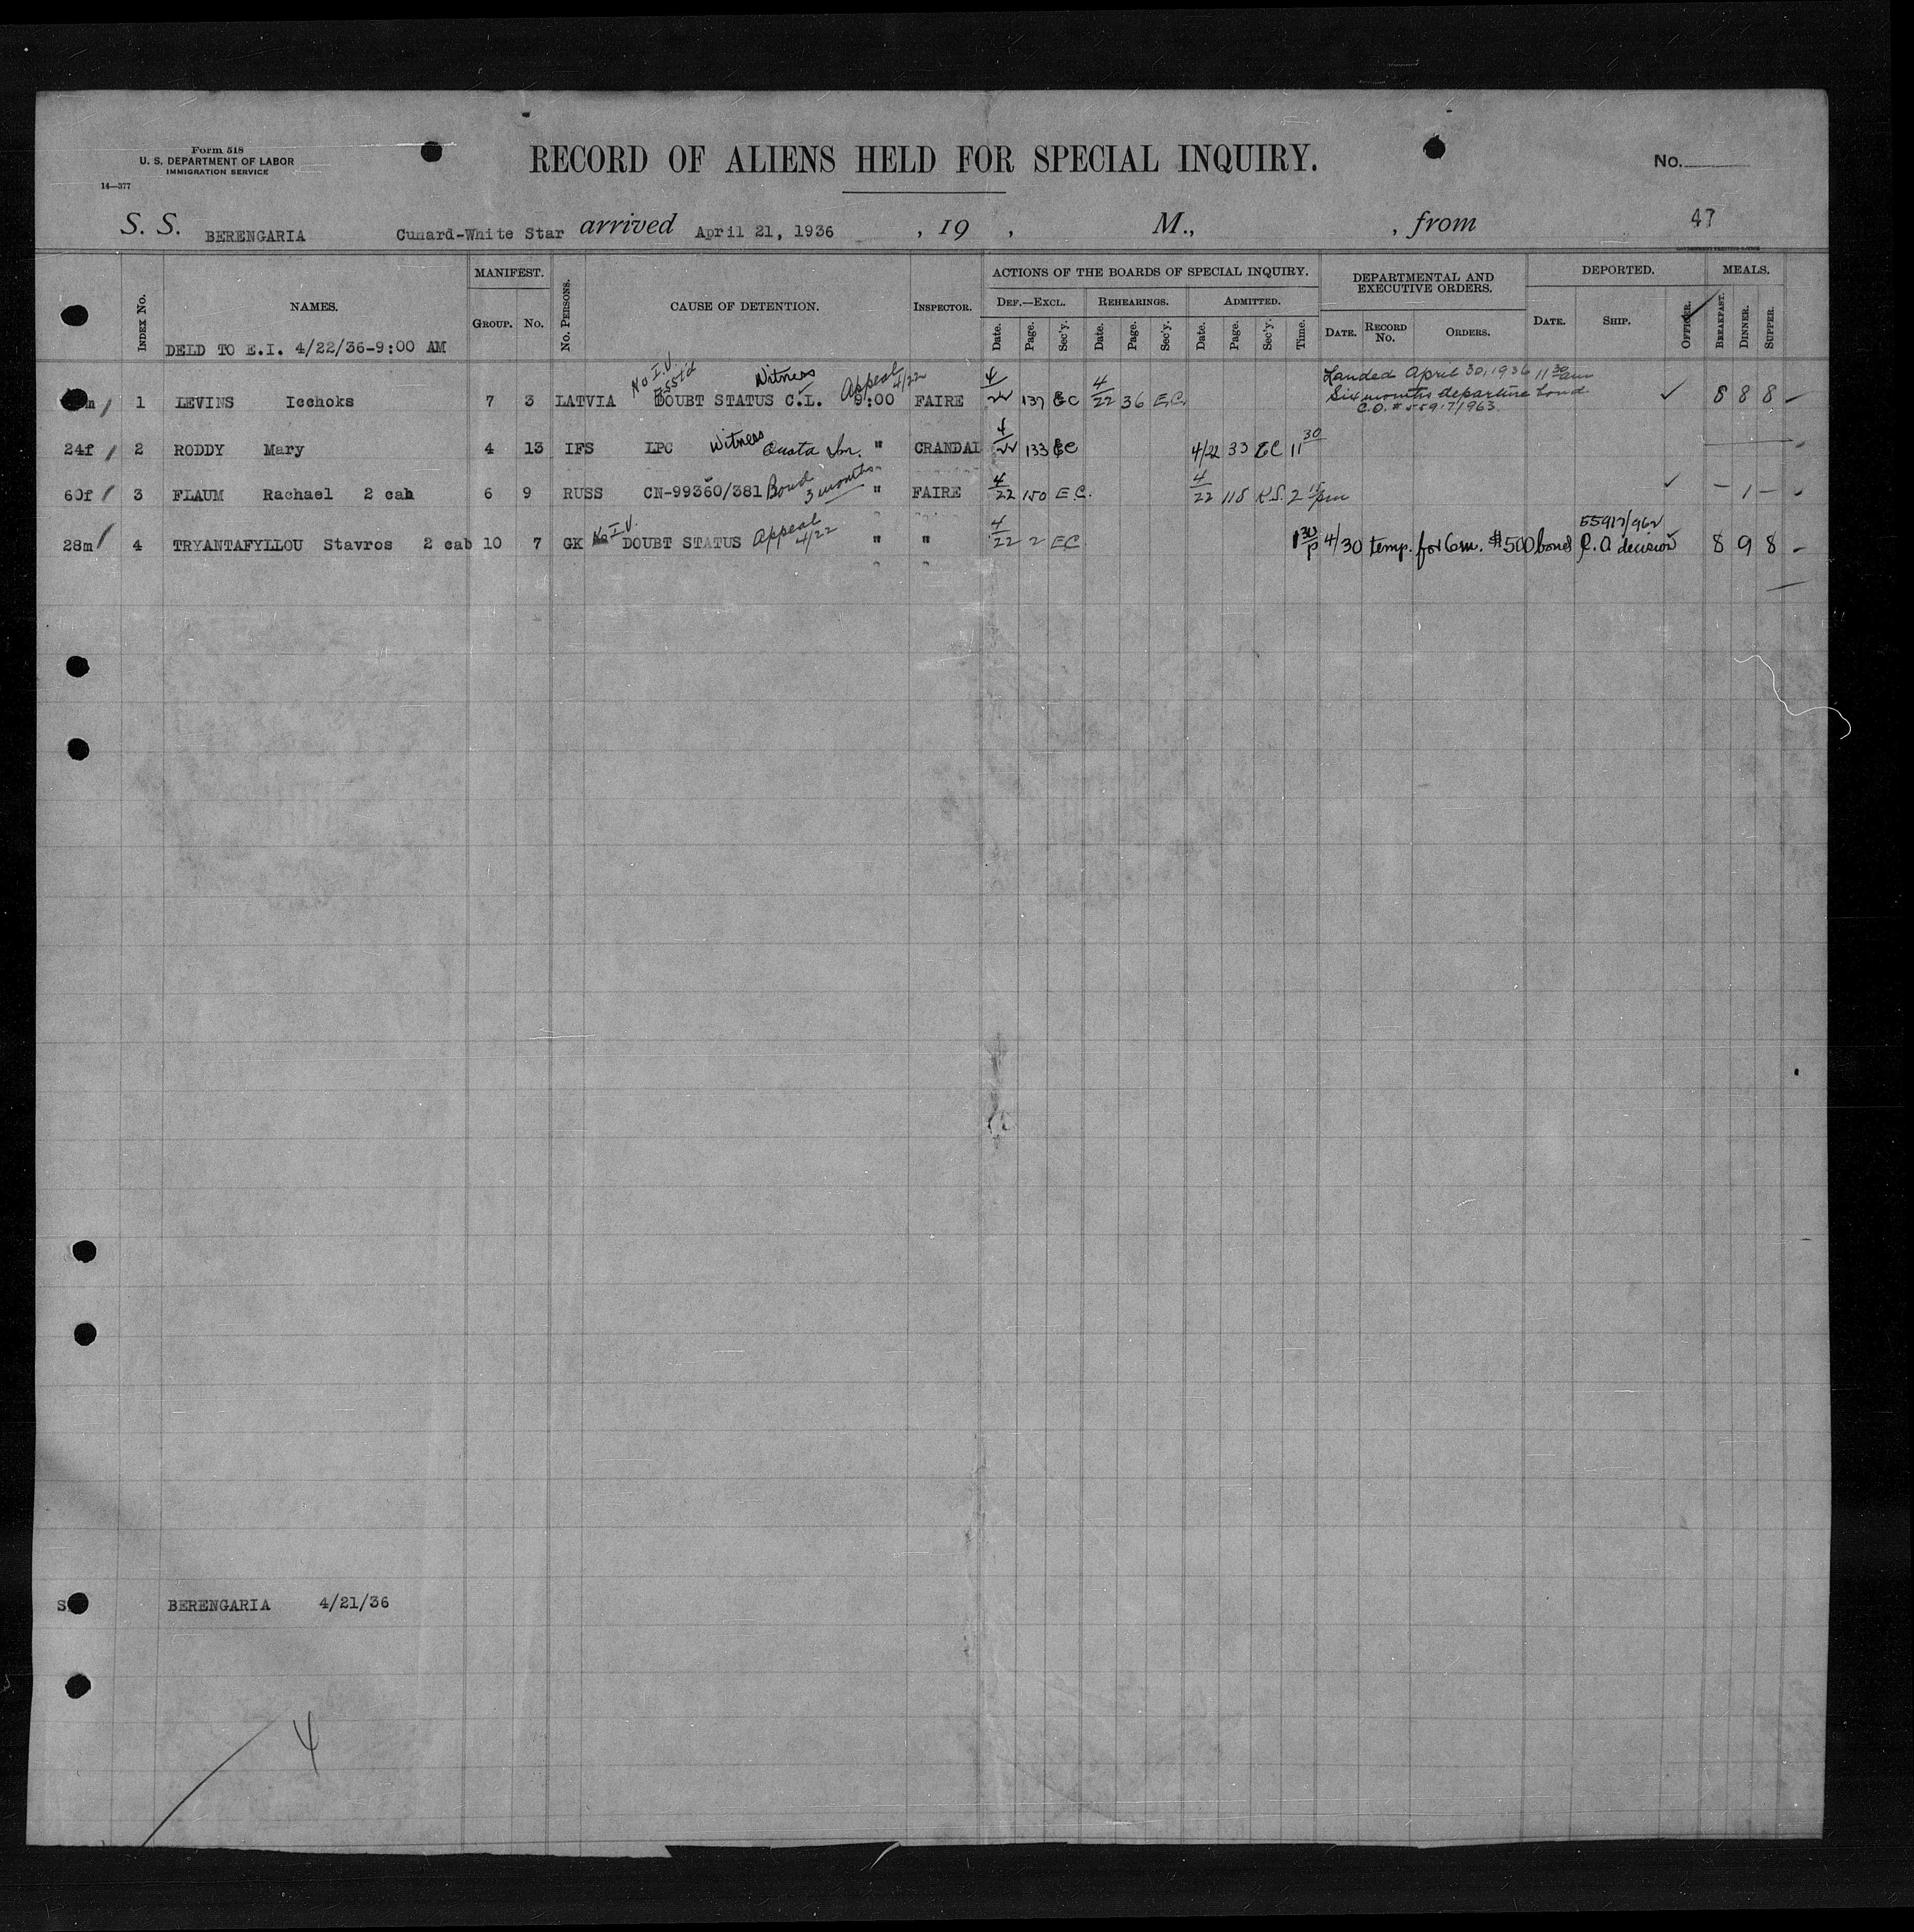 Form 518
U. S. DEPARTMENT OF LABOR
IMMIGRATION SERVICE
14—377
RECORD OF ALIENS HELD FOR SPECIAL INQUIRY.
No.
S. S. BERENGARIA Cunard-White Star arrived April 21, 1936 , 19 , M., , from 47
INDEX No. NAMES. MANIFEST. GROUP. No. No. PERSONS. CAUSE OF DETENTION. INSPECTOR. ACTIONS OF THE BOARDS OF SPECIAL INQUIRY. DEF.—EXCL. REHEARINGS. ADMITTED. DEPARTMENTAL AND EXECUTIVE ORDERS. DEPORTED. MEALS.
Date. Page. Sec'y. Date. Page. Sec'y. Date. Page. Sec'y. Time. DATE. RECORD No. ORDERS. DATE. SHIP. OFFICER. BREAKFAST. DINNER. SUPPER.
DELD TO E.I. 4/22/36-9:00 AM
No I.V. Witness Appeal 4/22 Landed April 30, 1936 11 30 am
m 1 LEVINS Icchoks 7 3 LATVIA DOUBT STATUS C.L. 9:00 FAIRE 4/22 137 EC 4/22 36 E.C. Six months departure bond 8 8 8
C.O. # 55917/963
24f 2 RODDY Mary 4 13 IFS LPC Witness Quota " CRANDAL 4/22 133 EC 4/22 33 EC 11 30
60f 3 FLAUM Rachael 2 cab 6 9 RUSS CN-99360/381 Bond 3 months " FAIRE 4/22 150 E.C. 4/22 118 R.S. 2 15 pm – 1 –
28m 4 TRYANTAFYLLOU Stavros 2 cab 10 7 GK No I.V. DOUBT STATUS Appeal 4/22 " " 4/22 2 EC 1 30 P 4/30 temp. for 6m. $500 bond C.O decision 55917/962 8 9 8
BERENGARIA 4/21/36
4